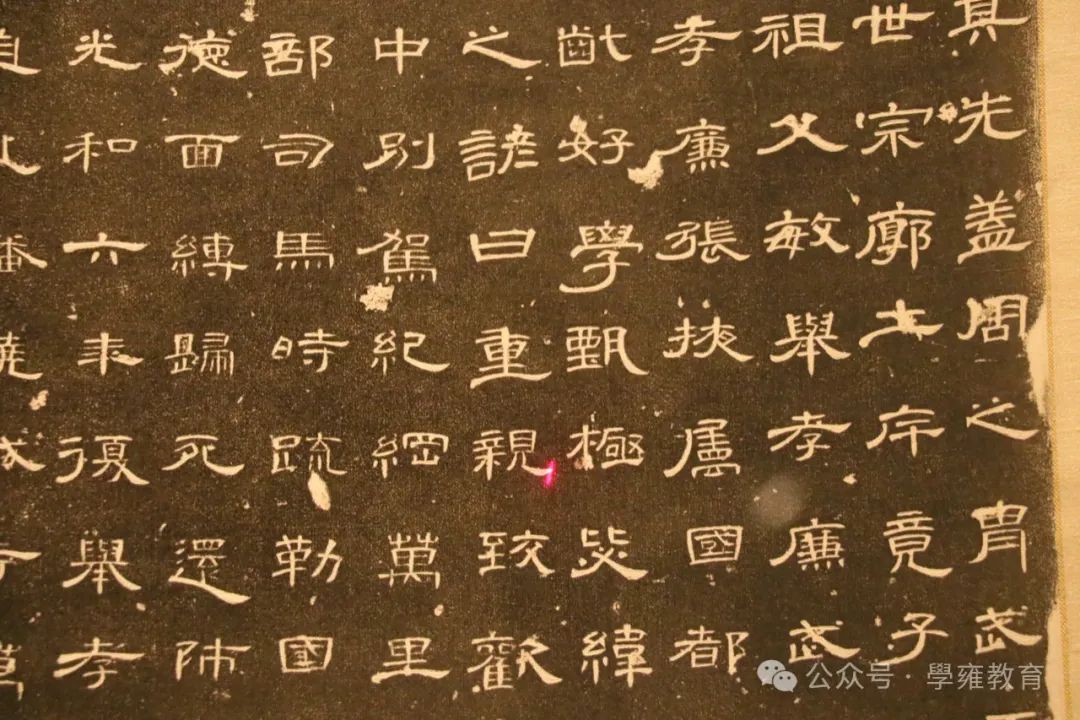 其先蓋周之胄武
世宗廓土斥竟子
祖父敏舉孝廉武
孝廉張掖屬國都
齔好學甄極毖緯
之諺曰重親致歡
中別駕紀綱萬里
部司馬時疏勒國
德面縛歸死還師
光和六年復舉孝
公众号 · 學雍教育